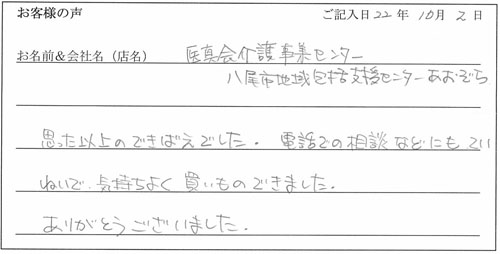 お客様の声 ご記入日 22 年 10 月 2 日
お名前＆会社名(店名) 医真会介護事業センター
八尾市地域包括支援センターあおぞら
思った以上のできばえでした。電話での相談などにもてい
ねいで、気持ちよく買いものできました。
ありがとうございました。